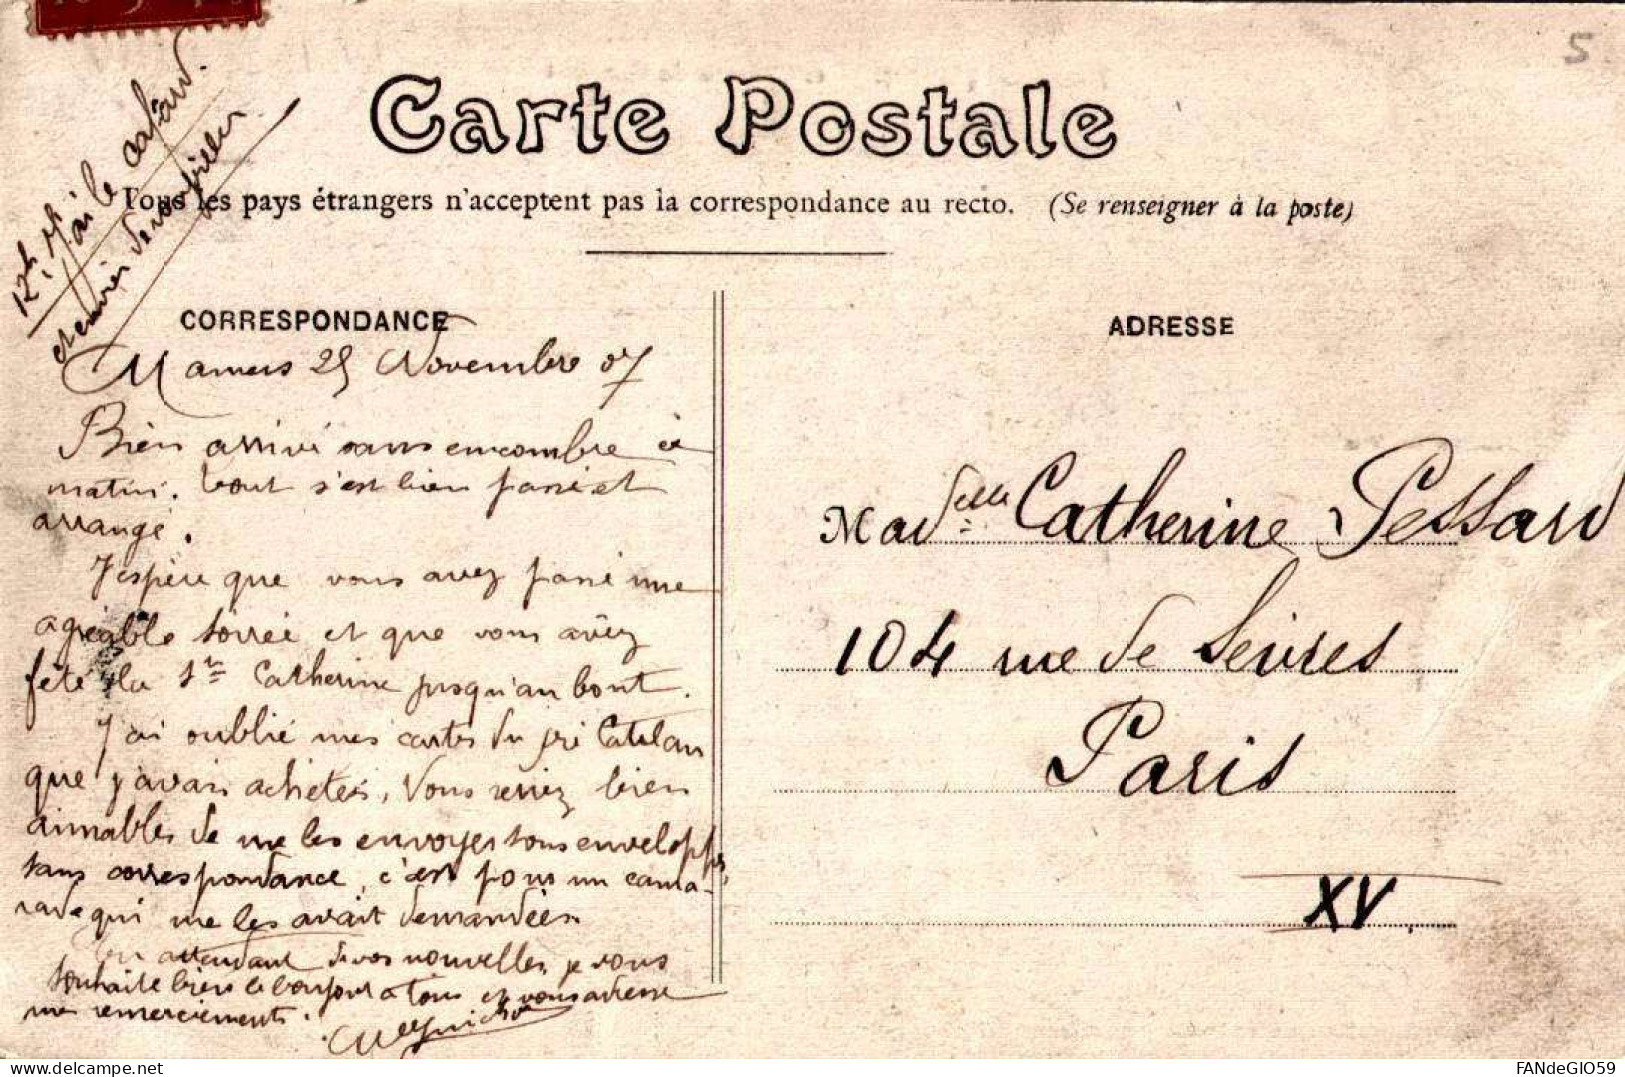 5
Carte Postale
Tous les pays étrangers n'acceptent pas la correspondance au recto. (Se renseigner à la poste)
12h 1/4 J'ai le cafard.
et envie de roupiller
CORRESPONDANCE
Mamers 25 Novembre 07
Bien arrivé sans encombre ce
matin. tout s'est bien passé et
arrangé.
J'espère que vous avez passé une
agréable soirée et que vous avez
fêté la Ste Catherine jusqu'au bout.
J'ai oublié mes cartes du
que j'avais achetées, Vous seriez bien
aimables de me les envoyer sous enveloppes,
sans correspondance, c'est pour un cama-
rade qui me les avait demandées.
En attendant de vos nouvelles, je vous
souhaite bien le bonjour à tous et vous adresse
mes remerciements.
ADRESSE
Madelle Catherine Pessard
104 rue de Seivres
Paris
XV
FANdeGIO59